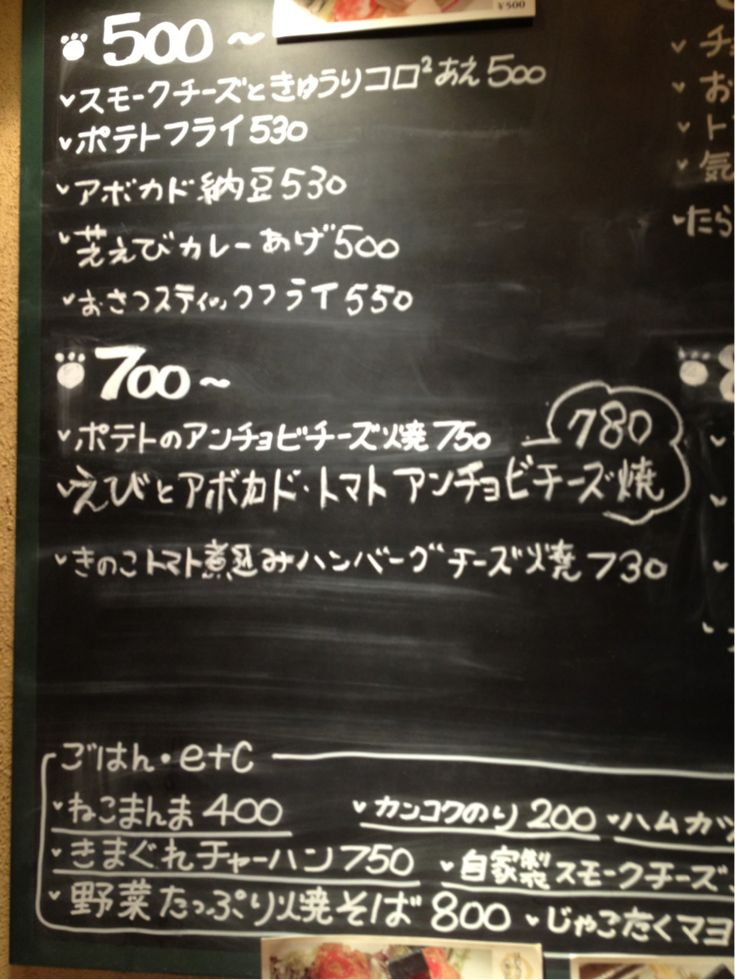 ¥500
500～
スモークチーズときゅうりコロ²あえ 500
ポテトフライ 530
アボカド納豆 530
芝えびカレーあげ 500
おさつスティックフライ 550
700～
ポテトのアンチョビチーズ焼 750
えびとアボカド・トマトアンチョビチーズ焼 780
きのこトマト煮込みハンバーグチーズ焼 730
チ
お
ト
気
たら
ごはん・etc
ねこまんま 400
カンコクのり 200
ハムカツ
きまぐれチャーハン 750
自家製スモークチーズ
野菜たっぷり焼そば 800
じゃこたくマヨ